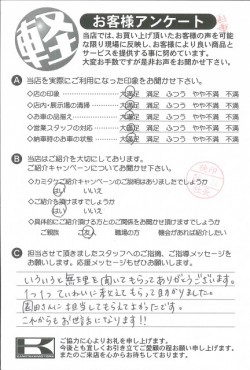 軽
お客様アンケート
当店では、お買い上げ頂いたお客様の声を可能
な限り現場に反映し、お客様により良い商品と
サービスを提供する事に努めています。
大変お手数ですが是非お声をお聞かせ下さい。
A 当店を実際にご利用になった印象をお聞かせ下さい。
◇店の印象 大満足 満足 ふつう やや不満 不満
◇店内・展示場の清掃 大満足 満足 ふつう やや不満 不満
◇お車の品揃え 大満足 満足 ふつう やや不満 不満
◇営業スタッフの対応 大満足 満足 ふつう やや不満 不満
◇納車時のお車の状態 大満足 満足 ふつう やや不満 不満
B 当店はご紹介を大切にしております。
ご紹介キャンペーンについてお聞かせ下さい。
◇カミタケご紹介キャンペーンのご説明はありましたでしょうか
はい いいえ
◇ご紹介を頂けますでしょうか
はい いいえ
◇具体的にご紹介頂ける方とのご関係をお聞かせ頂けますでしょうか
ご親族 ご友人 職場の方 機会があれば紹介したい
C 担当させて頂きましたスタッフへのご指摘、ご指導メッセージを
お願いします。応援メッセージもぜひお願いします。
いろいろと無理を聞いてもらってありがとうございます。
1つ1つていねいに教えてもらって助かりました。
園田さんに担当してもらえてよかったです。
これからもお世話になります!!
ご協力に心よりお礼申し上げます。
今後とも宜しくお引き立てご愛顧の程お願い申し上げます。
またのご来店を心からお待ちしております。